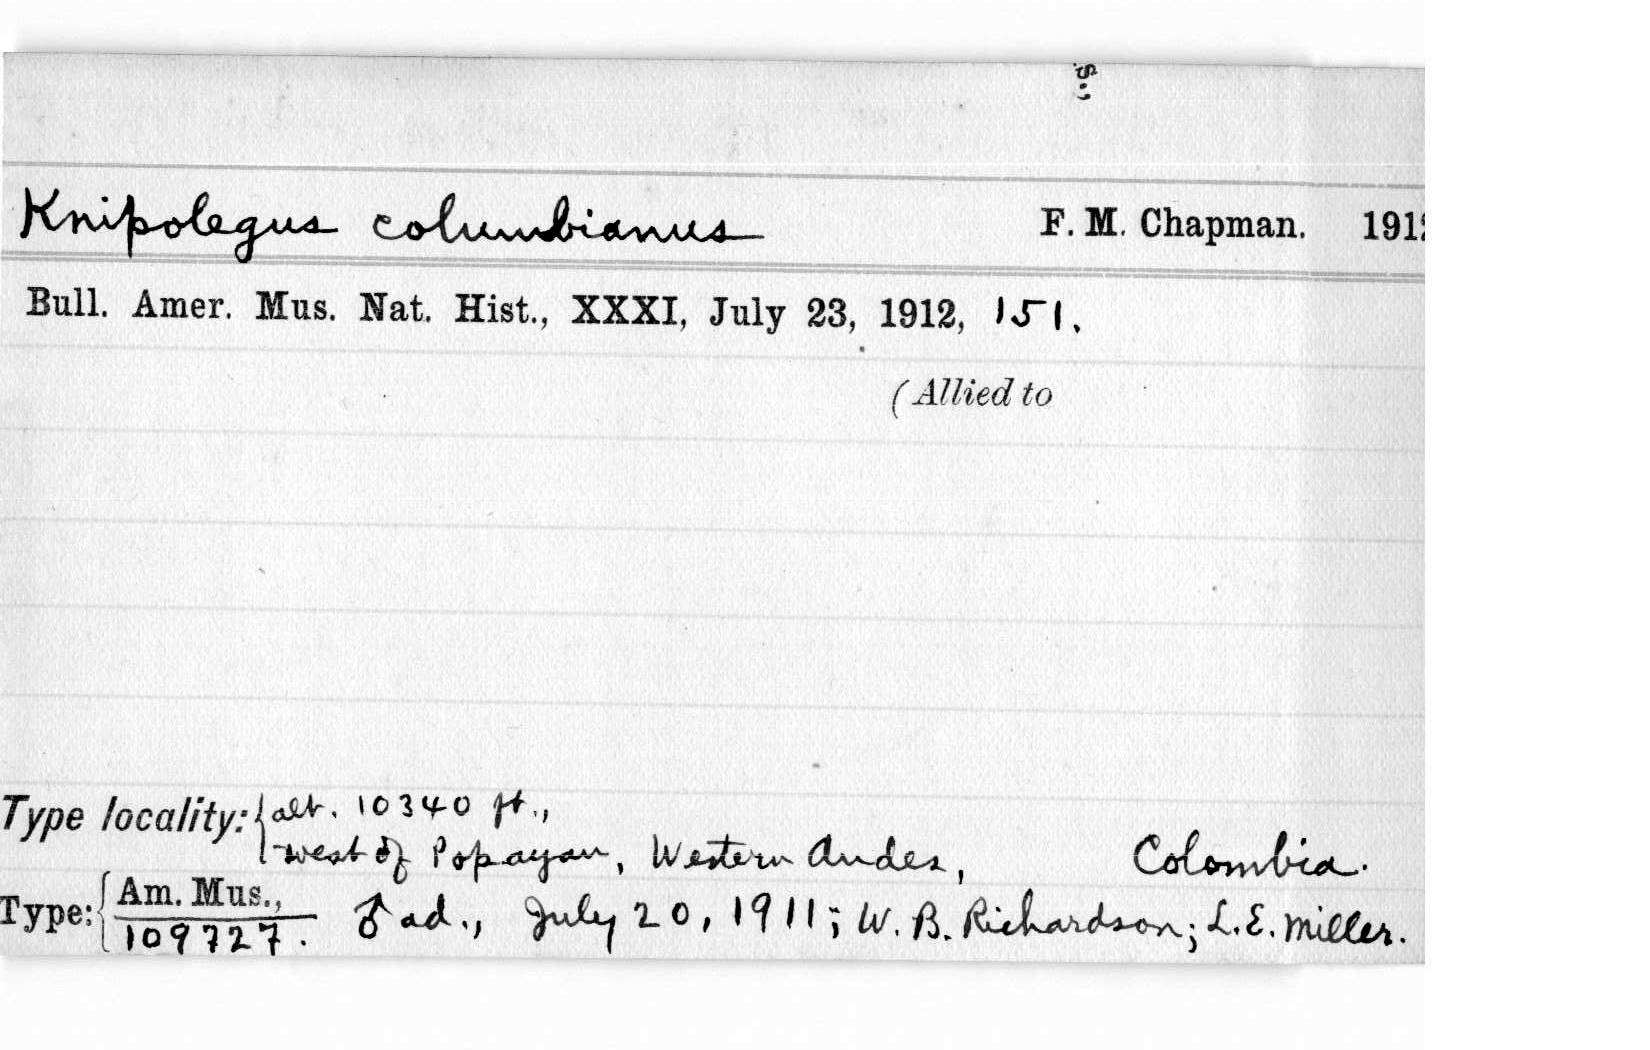 Knipolegus columbianus F. M. Chapman. 191
Bull. Amer. Mus. Nat. Hist., XXXI, July 23, 1912, 151.
(Allied to
Type locality: { alt. 10340 ft.,
west of Popayan, Western Andes, Colombia.
Type: { Am. Mus.,
109727. ♂ ad., July 20, 1911; W. B. Richardson; L. E. Miller.